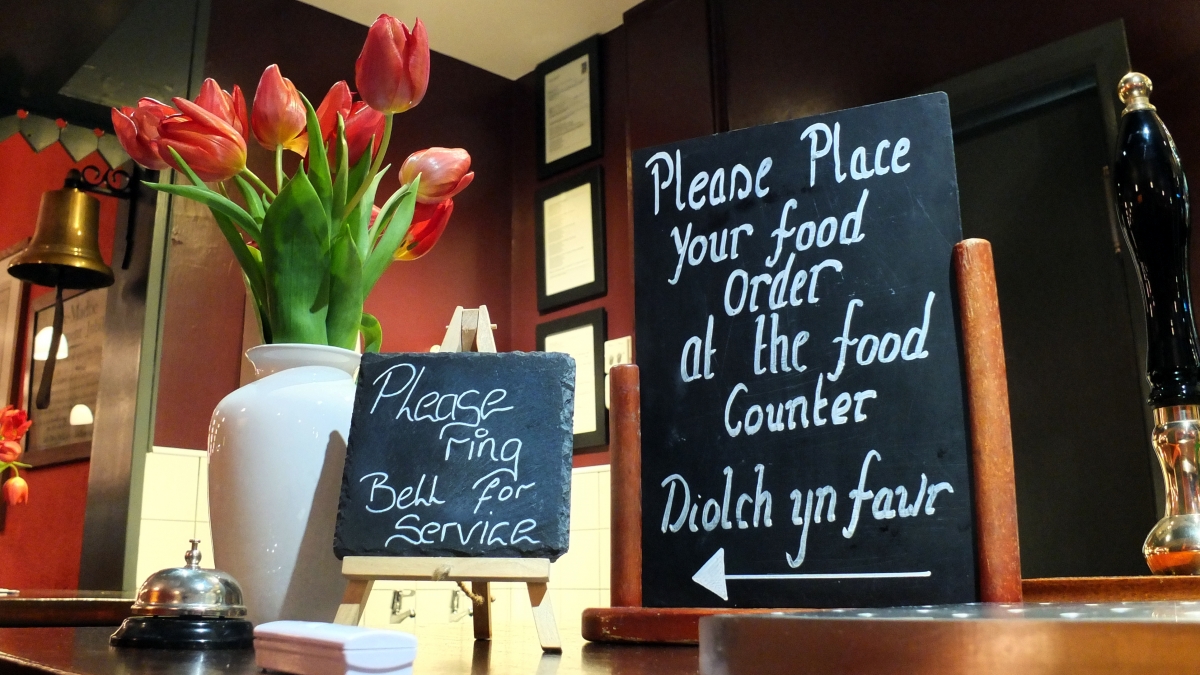 Please
ring
Bell for
Service
Please Place
your food
order
at the food
Counter
Diolch yn fawr